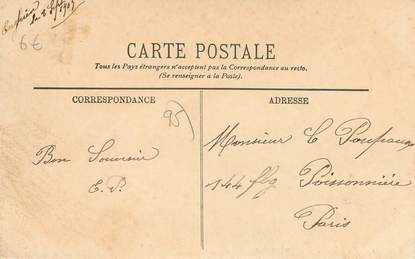 le 2 Sept 1907
6€
CARTE POSTALE
Tous les Pays étrangers n'acceptent pas la Correspondance au recto.
(Se renseigner à la Poste).
CORRESPONDANCE
95
Bon Souvenir
E. P.
ADRESSE
Monsieur C
144 fbg Poissonnière
Paris